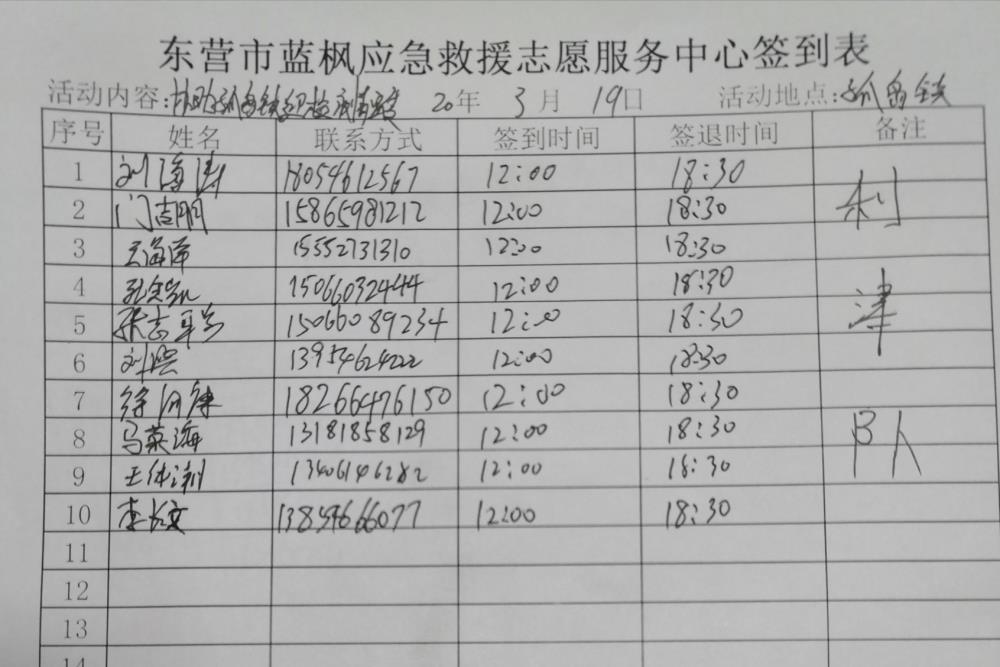 东营市蓝枫应急救援志愿服务中心签到表
活动内容: 协助孤岛铁 20年 3月 19日 活动地点: 孤岛铁
序号 姓名 联系方式 签到时间 签退时间 备注
1 刘海涛 18054612567 12:00 18:30
2 门吉明 15865981212 12:00 18:30 利
3 王海洋 15552731310 12:00 18:30
4 15066032444 12:00 18:30
5 张志军 15066089234 12:00 18:30 津
6 刘熙 13954624222 12:00 18:30
7 徐 18266476150 12:00 18:30
8 马英海 13181858129 12:00 18:30 队
9 王体利 13406146282 12:00 18:30
10 李长文 13854666077 12:00 18:30
11
12
13
14